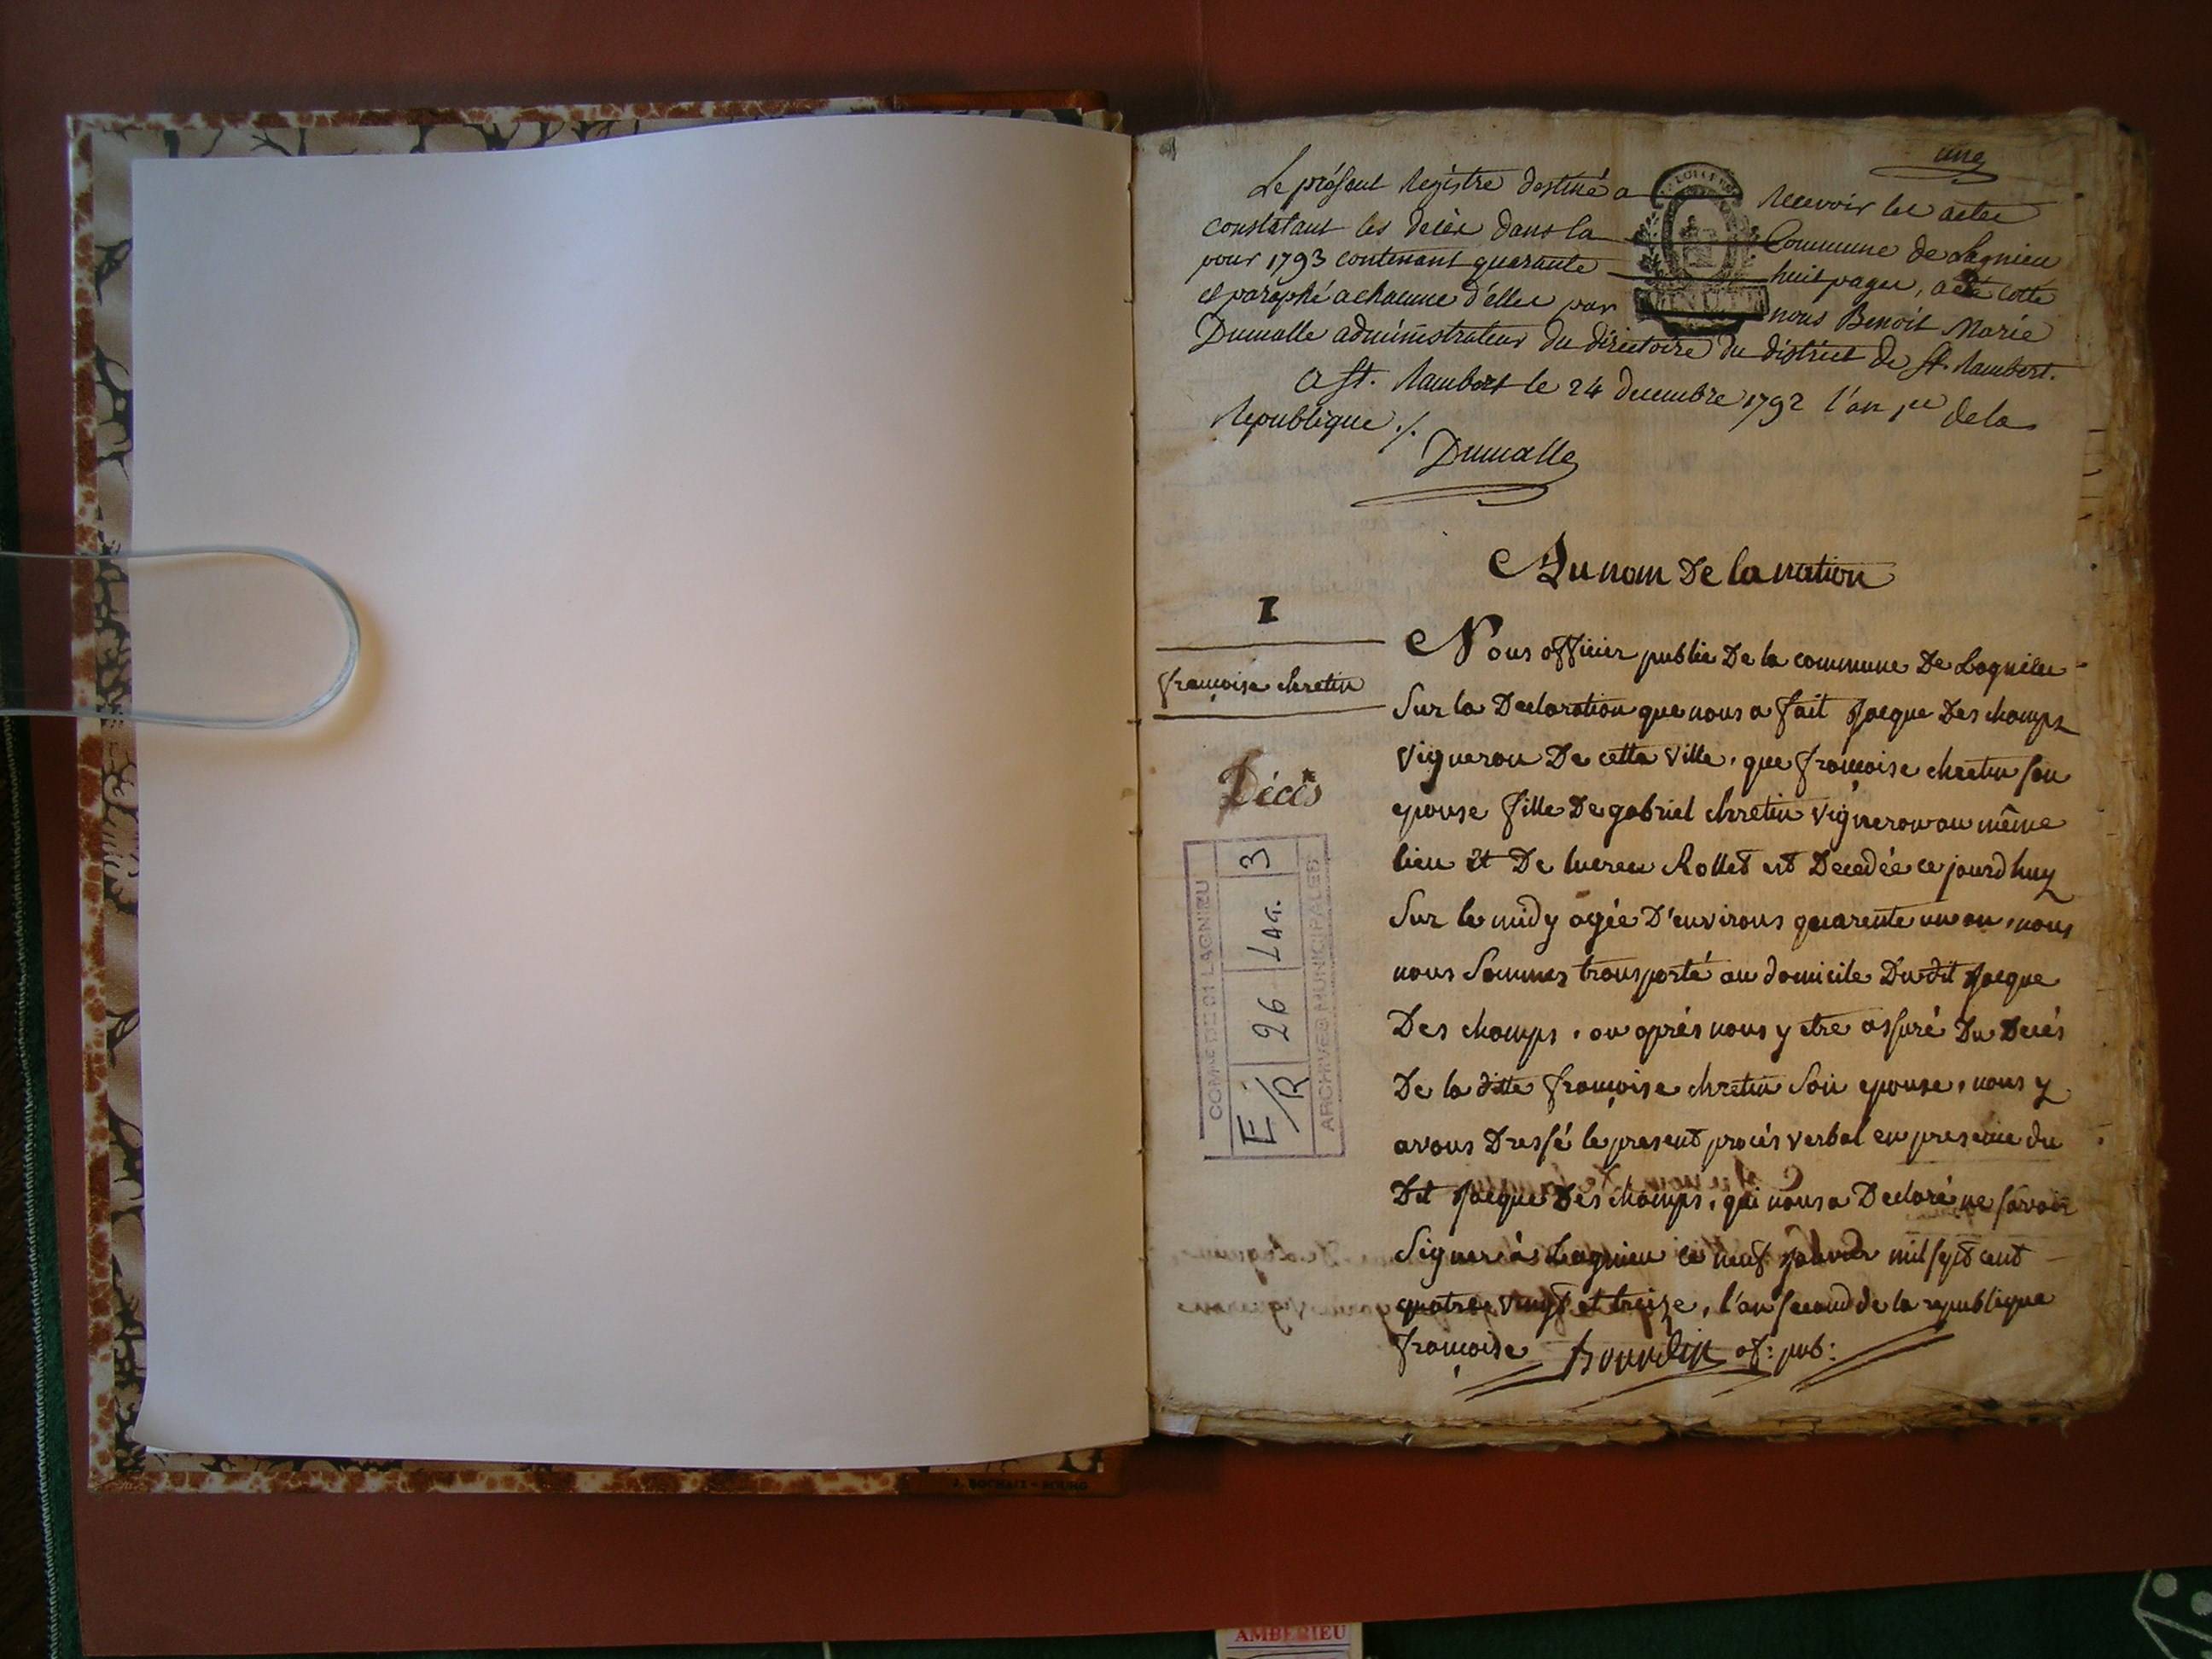 une
Le présent Registre destiné a recevoir les actes
constatant les décès dans la Commune de Lagnieu
pour 1793 contenant quarante huit pages, a été cotté
et paraphé a chacune d'elles par nous Benoit Marie
Dumalle administrateur du directoire du district de St. Rambert.
a St. Rambert le 24 decembre 1792 l'an 1er de la
Republique ./.
Dumalle
MINUTE
Au nom De la nation
1
françoise chretin
Décès
COMMUNE 01 LAGNIEU
E/R 26 LAG. 3
ARCHIVES MUNICIPALES
Nous officier public De la commune De Lagnieu
Sur la Declaration que nous a fait Jacque Des champs
Vigneron De cette Ville, que françoise chretin son
epouse fille De gabriel chretin vigneron au même
lieu et De lucrece Rollet est Decedée ce jourd huy
Sur le midy agée D'environs quarente un an, nous
nous Sommes transporté au domicile Dudit Jacque
Des champs, ou aprés nous y etre assuré Du Decés
De la ditte françoise chretin Son epouse, nous y
avons Dressé le present procés verbal en presence du
Dit Jacque Des champs, qui nous a Declaré ne savoir
Signer à Lagnieu ce neuf janvier mil sept cent
quatre vingt et treize, l'an second de la republique
françoise Bourdin of: pub:
J. ROCHAIX - BOURG
AMBERIEU